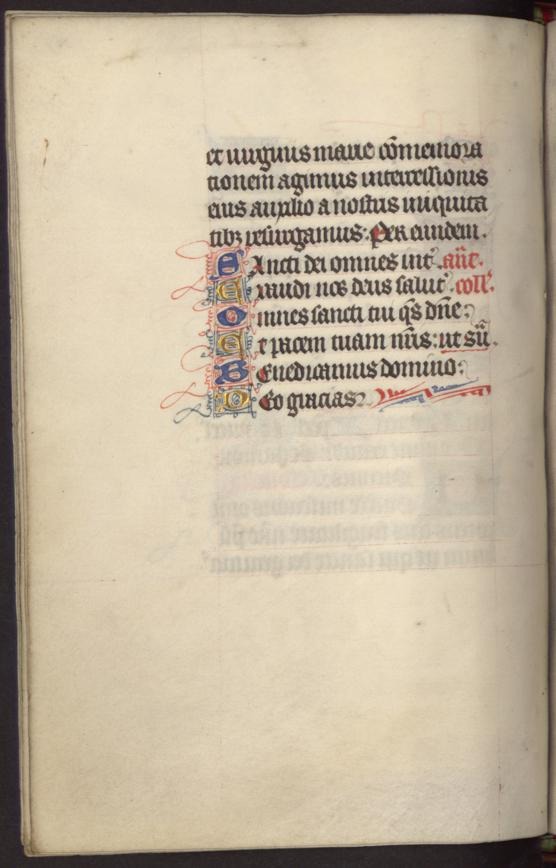 et virginis marie cōmemora
tionem agimus intercessionis
eius auxilio a nostris iniquita
tibꝫ resurgamus. Per eundem.
Sancti dei omnes int̄. añt.
Exaudi nos deus salut̄. coll̄.
Omnes sancti tui q̄s dn̄e:
Et pacem tuam nr̄is: ut sū.
Benedicamus domino:
Deo gracias